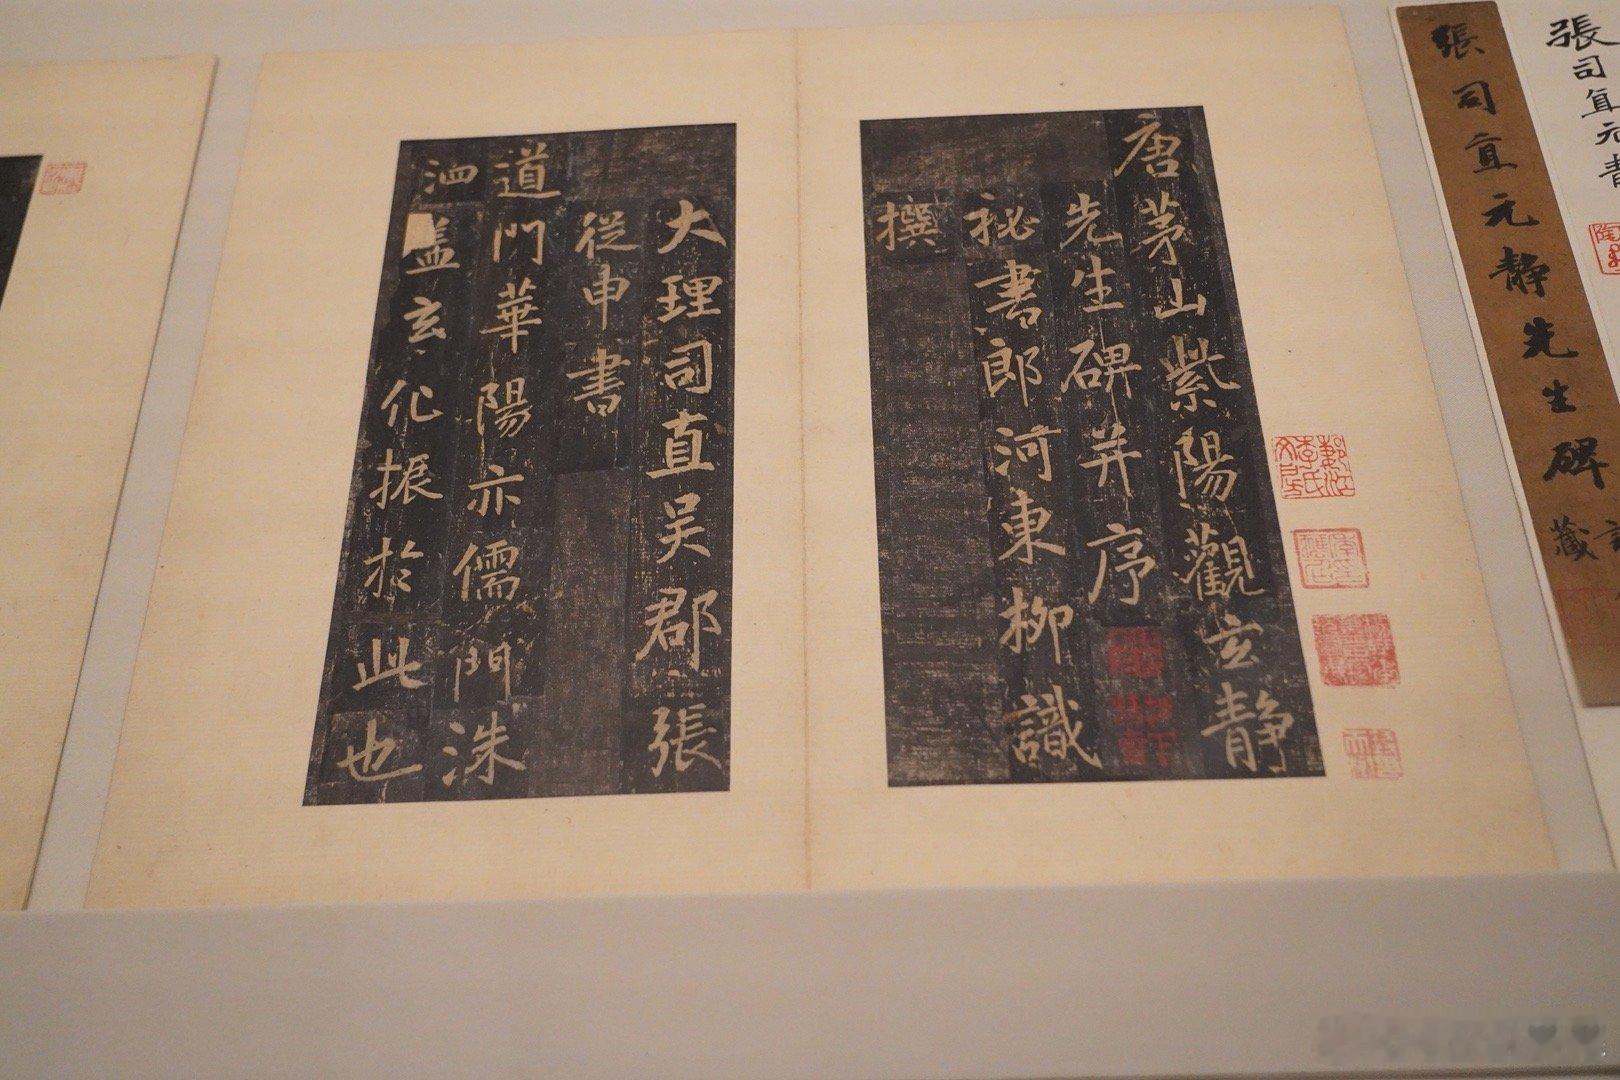 張司直元靜
張司直元靜先生碑
藏
唐茅山紫陽觀玄靜
先生碑并序
祕書郎河東柳識
撰
大理司直吳郡張
從申書
道門華陽亦儒門洙
泗盖玄化振於此也